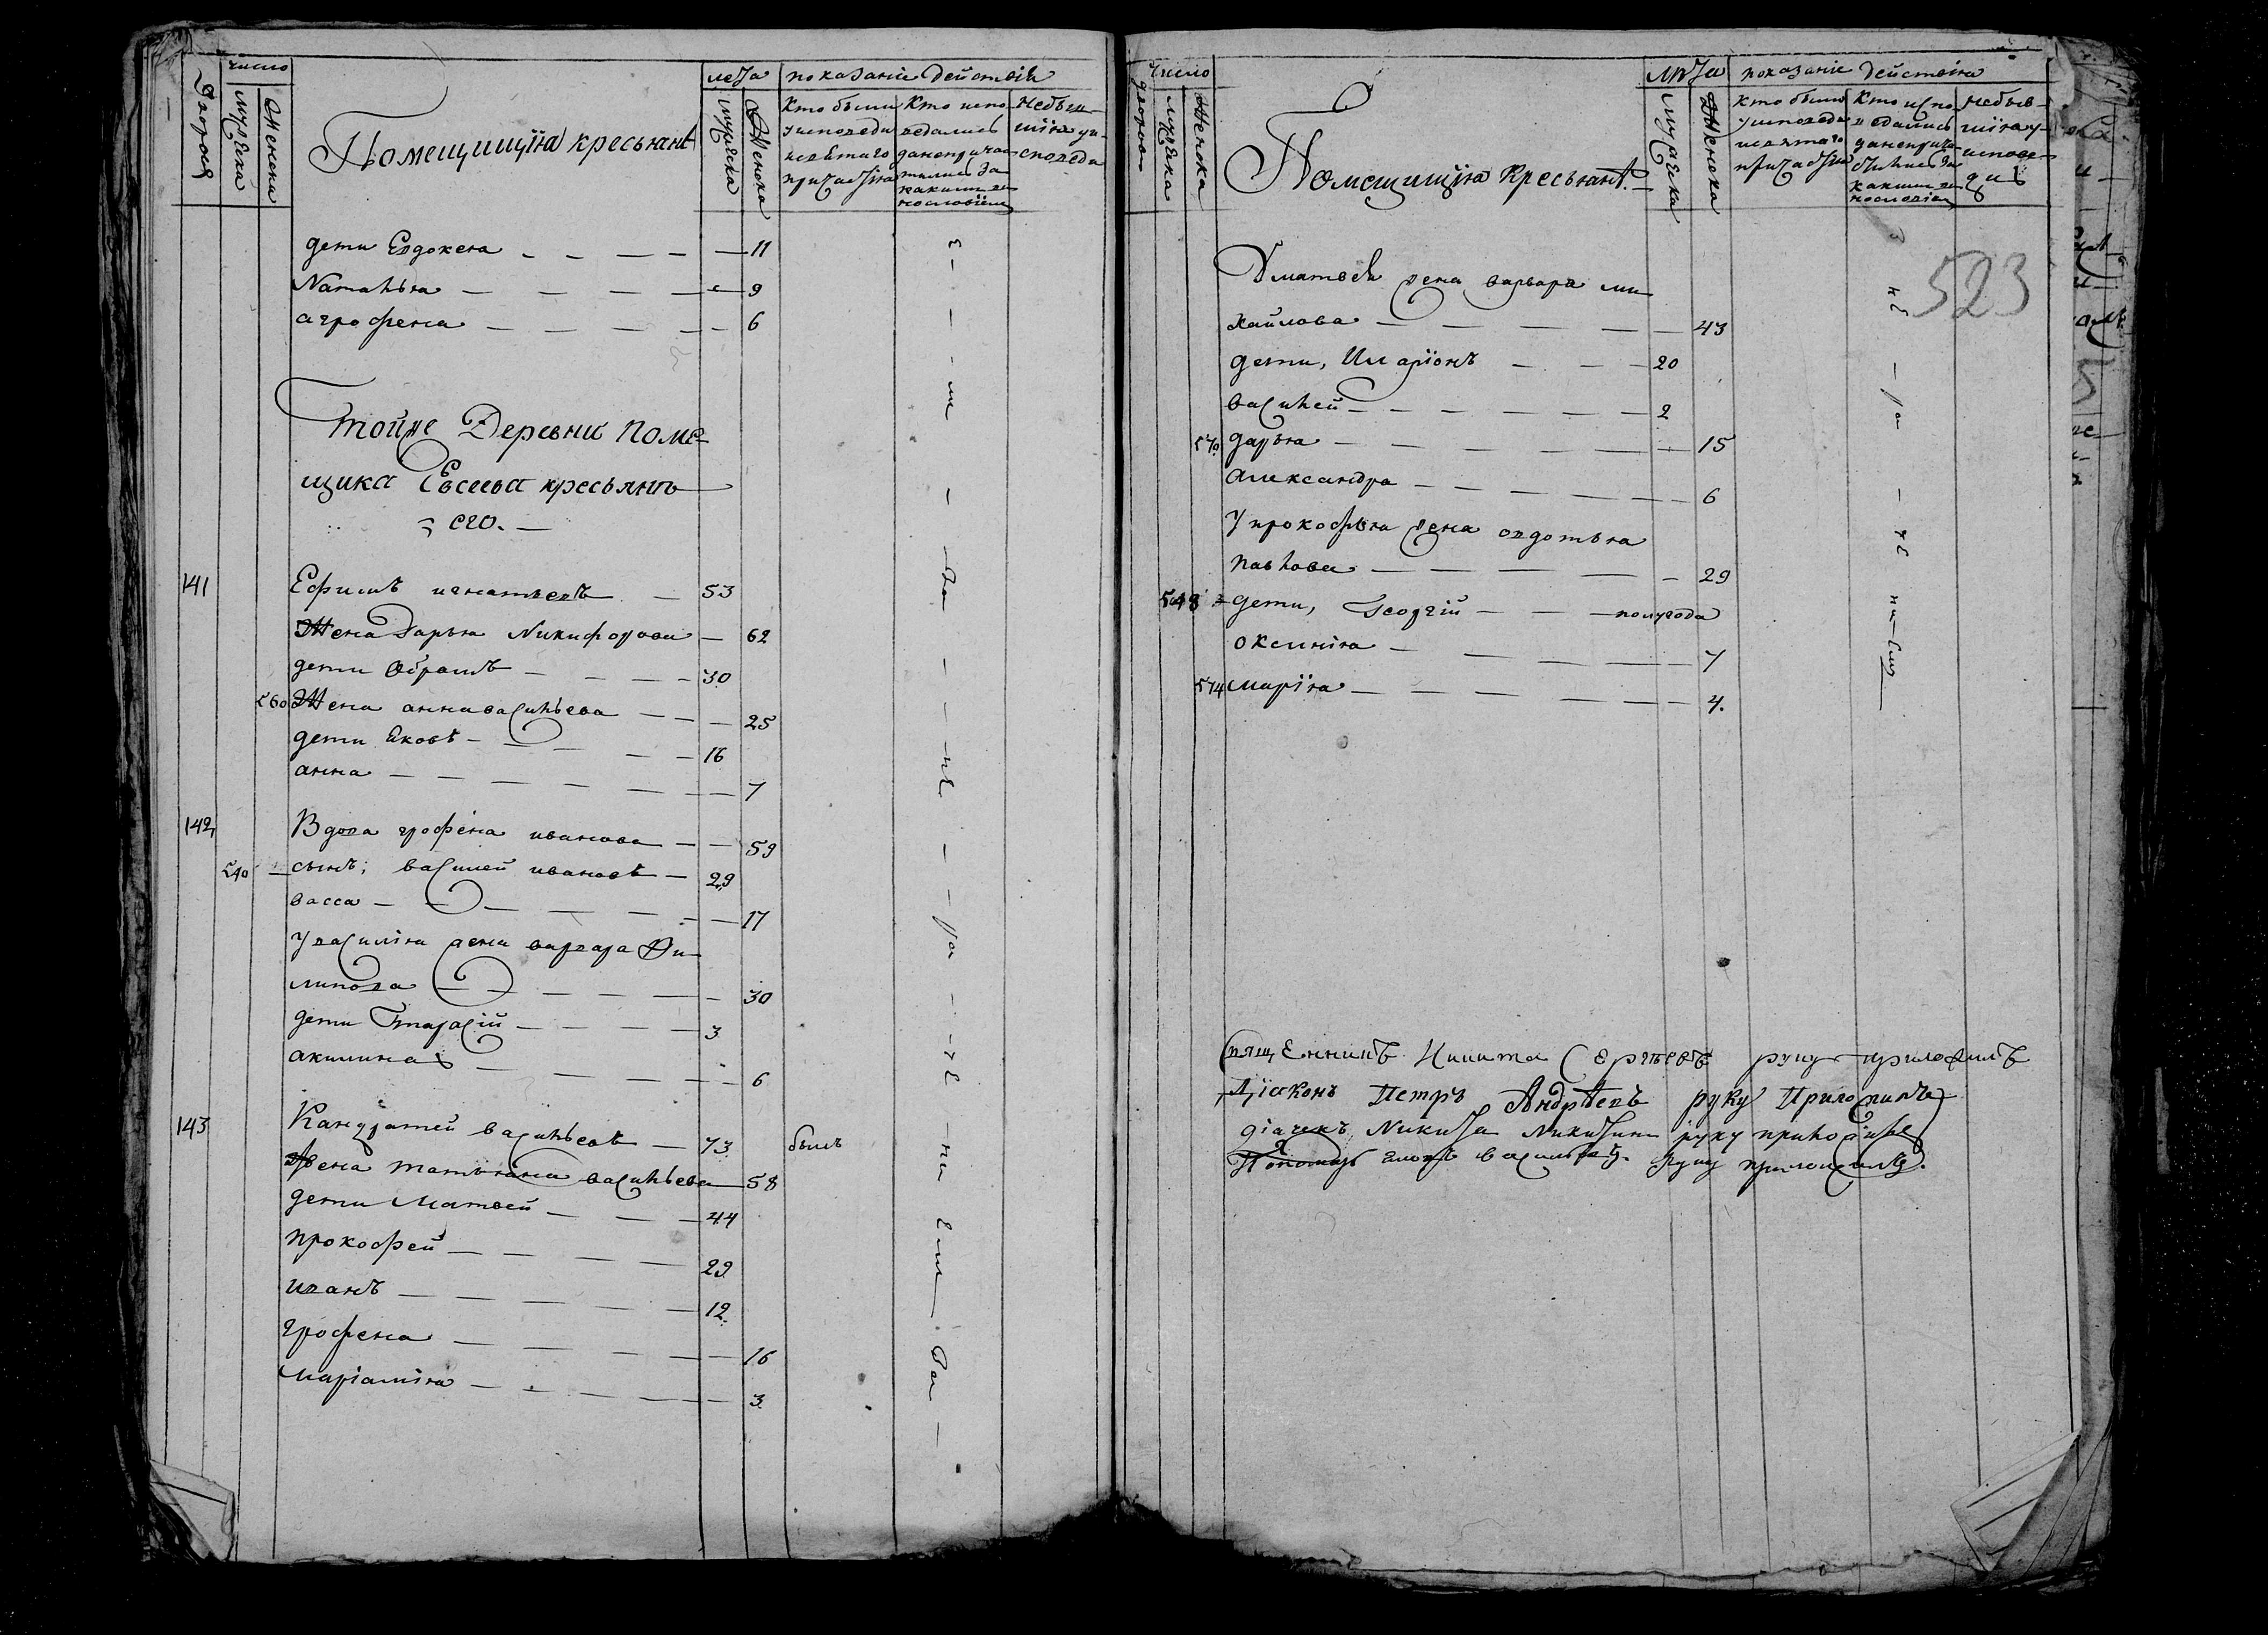 Дворовъ
число
мужска
Женска
Помещищія кресьянѣ
лета
мужска
Женска
показаніе действія
Кто были
уисповеди
исвѣтаго
причастія
Кто испо
ведались
данепричас
тились за
какимъ ви
нословіем
Небыв
шія уи
споведи
дети Евдокея — 11
Наталья — 9
агрофена — 6
тойже Деревни поме
щика Евсеева кресьянъ
его.
141 Ефимъ игнатьевъ — 53
Жена Дарья Никифорова — 62
дети Абрамъ — 30
560 Жена анна васильева — 25
дети Яковъ — 16
анна — 7
142 Вдова грофена иванова — 59
540 сынъ, василей ивановъ — 29
васса — 17
у василія жена варвара Фи
липова — 30
дети Тарасій — 3
акилина — 6
143 Кандратей васильевъ — 73 былъ
Жена татьяна васильева — 58
дети Матвей — 44
прокофей — 29
иванъ — 12
грофена — 16
маріамія — 3
Число
дворовъ
мужска
Женска
Помещищія кресьянѣ
лѣта
мужска
Женска
показаніе действія
Кто были
уисповеди
исвятаго
причастія
Кто испо
ведались
данепричас
тились за
какимъ ви
нословіем
небыв
шія у
испове
ди
523
У матвея жена варвара ми
хайлова — 43
дети, Иларіонъ — 20
василей — 2
570 дарья — 15
Александра — 6
У прокофья жена авдотья
павлова — 29
548 дети, Георгій — полугода
оксинія — 7
574 марія — 4.
Священникъ Никита Сергѣевъ руку приложилъ
Діаконъ Петръ Андрѣевъ руку Приложилъ
діачекъ Никита Никитинъ руку приложилъ
Пономарь васильевъ руку приложилъ.